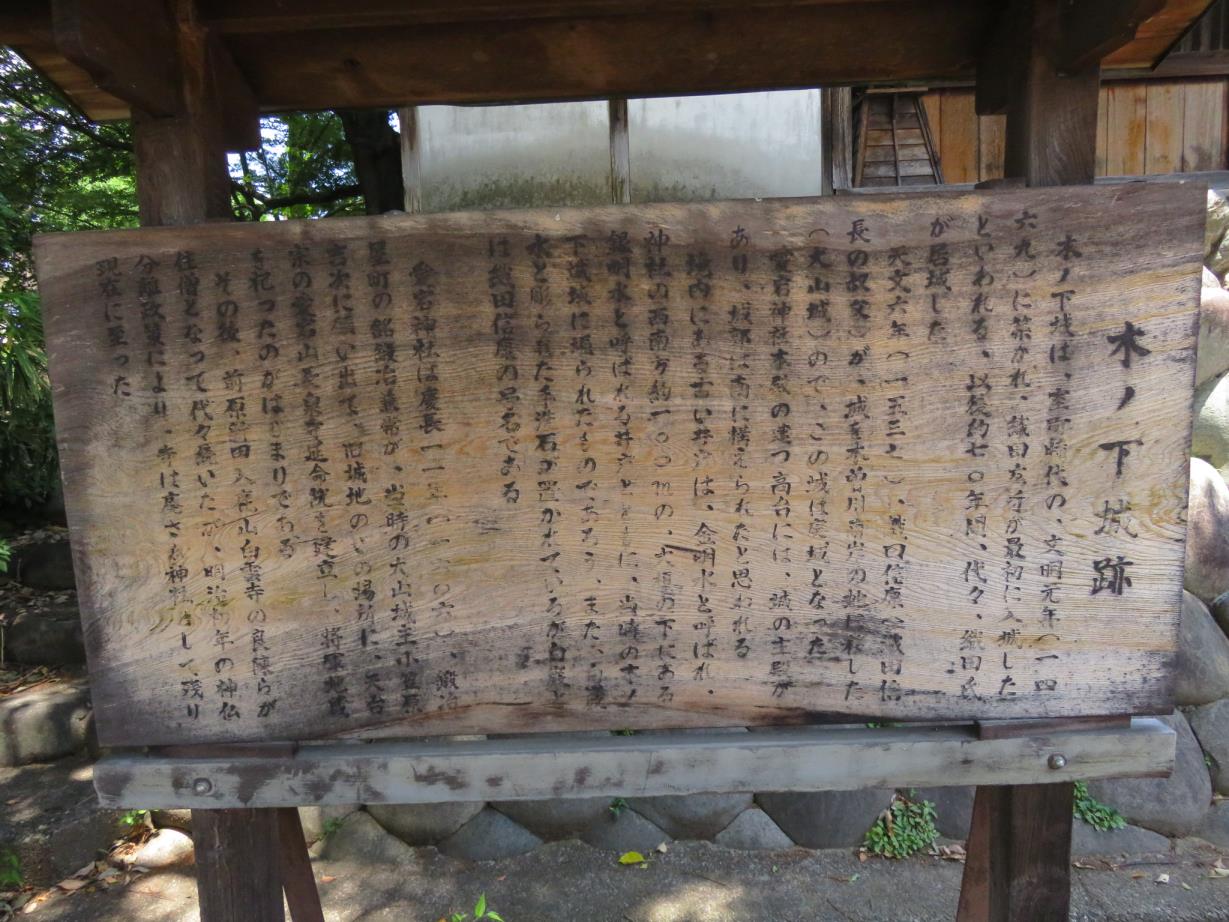 木ノ下城跡
木ノ下城は、室町時代の、文明元年（一四
六九）に築かれ、織田友が最初に入城した
といわれる、以後約七〇年間、代々、織田氏
が居城した
天文六年（一五三七）、織田信康（織田信
長の叔父）が、城を木曽川南岸の地に移した
（犬山城）ので、この城は廃城となった
愛宕神社本殿の建つ高台には、城の主殿が
あり、城郭は南に構えられたと思われる
境内にある古い井戸は、金明水と呼ばれ、
神社の西南方約一〇〇mの、大榎の下にある
銀明水と呼ばれる井戸とともに、当時の木ノ
下城域に掘られたものであろう、また、白厳
水と彫られた手洗石が置かれているが白厳と
は織田信康の号名である
愛宕神社は慶長一一年（一六〇六）、鍛冶
屋町の鍛冶兼常が、当時の犬山城主小笠原
吉次に願い出て、旧城地のこの場所に、天台
宗の愛宕山長泉寺延命院を建立し、将軍地蔵
を祀ったのがはじまりである
その後、前原田入鹿山白雲寺の良らが
住僧となって代々続いたが、明治初年の神仏
分離政策により、寺は廃され神社として残り
現在に至った